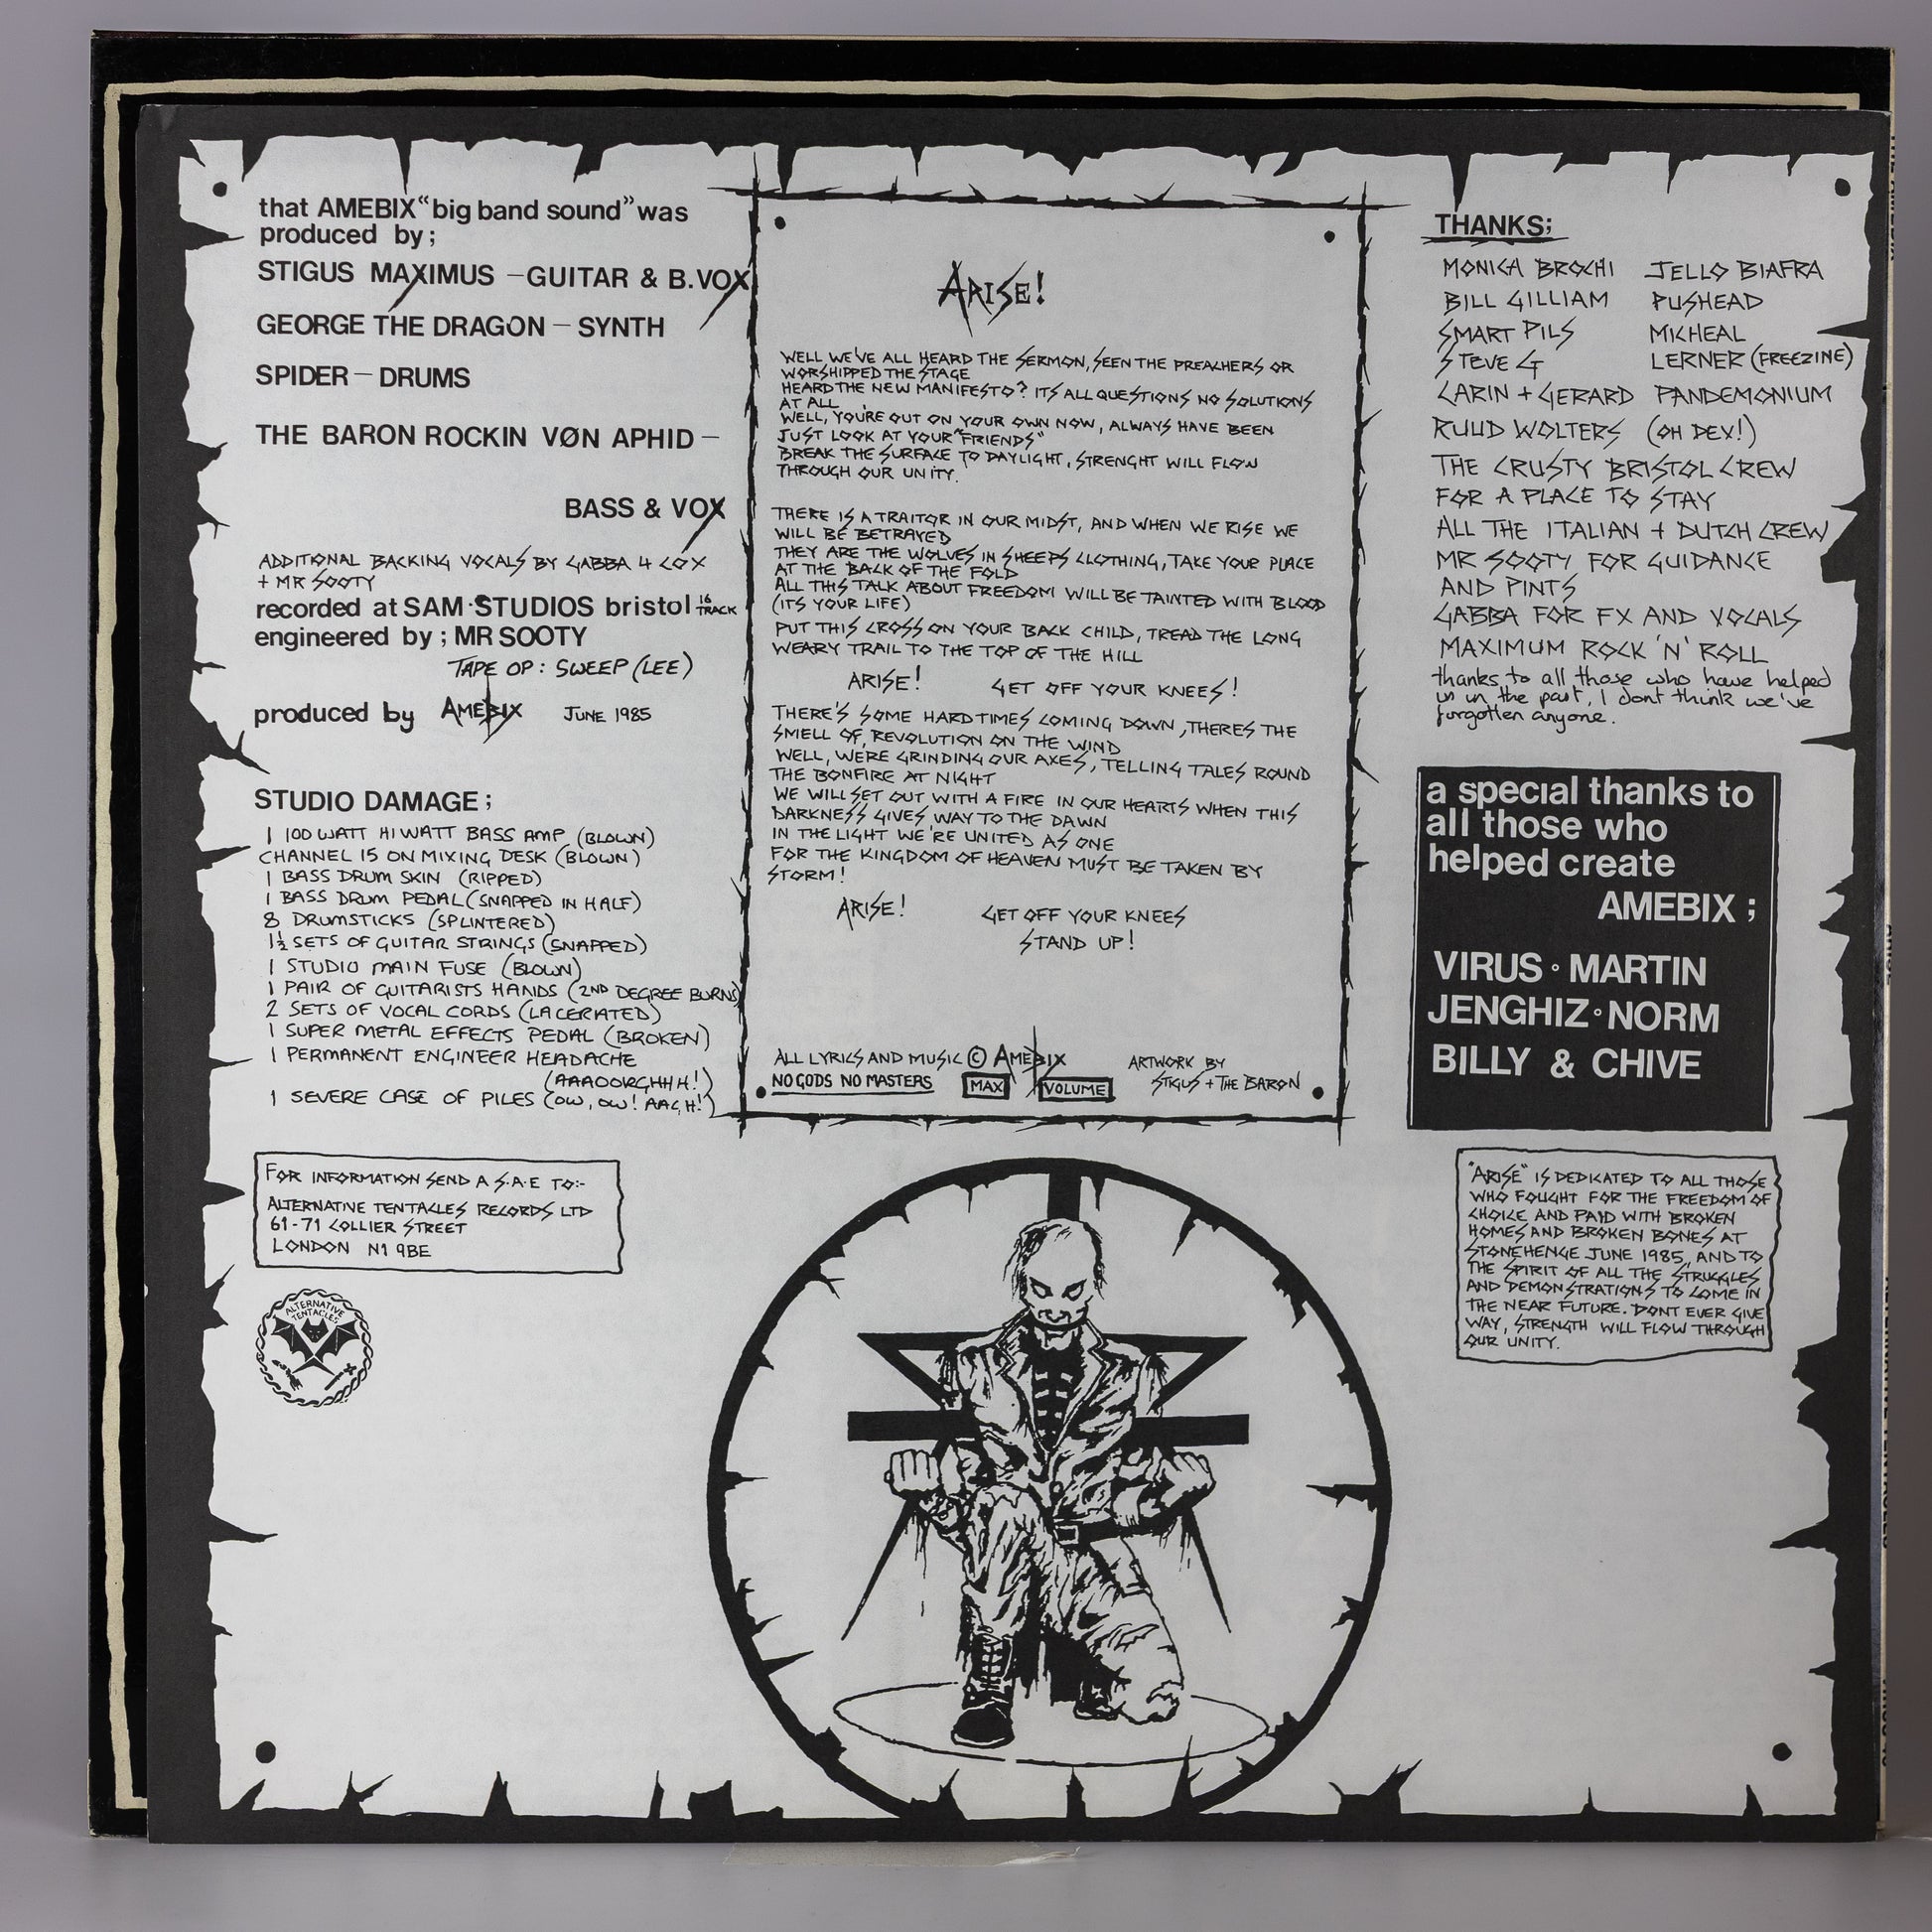 that AMEBIX “big band sound” was
produced by ;
STIGUS MAXIMUS – GUITAR & B.VOX
GEORGE THE DRAGON – SYNTH
SPIDER – DRUMS
THE BARON ROCKIN VØN APHID –
BASS & VOX
ADDITIONAL BACKING VOCALS BY GABBA 4 COX
+ MR SOOTY
recorded at SAM·STUDIOS bristol 16 TRACK
engineered by ; MR SOOTY
TAPE OP : SWEEP (LEE)
produced by AMEBIX JUNE 1985
STUDIO DAMAGE ;
1 100 WATT HIWATT BASS AMP (BLOWN)
CHANNEL 15 ON MIXING DESK (BLOWN)
1 BASS DRUM SKIN (RIPPED)
1 BASS DRUM PEDAL (SNAPPED IN HALF)
8 DRUMSTICKS (SPLINTERED)
1½ SETS OF GUITAR STRINGS (SNAPPED)
1 STUDIO MAIN FUSE (BLOWN)
1 PAIR OF GUITARISTS HANDS (2ND DEGREE BURNS)
2 SETS OF VOCAL CORDS (LACERATED)
1 SUPER METAL EFFECTS PEDAL (BROKEN)
1 PERMANENT ENGINEER HEADACHE
(AAAOORGHHH!)
1 SEVERE CASE OF PILES (OW, OW! AAGH!)
FOR INFORMATION SEND A S.A.E TO:-
ALTERNATIVE TENTACLES RECORDS LTD
61-71 COLLIER STREET
LONDON N1 9BE
ALTERNATIVE
TENTACLES
ARISE!
WELL WE'VE ALL HEARD THE SERMON, SEEN THE PREACHERS OR
WORSHIPPED THE STAGE
HEARD THE NEW MANIFESTO? ITS ALL QUESTIONS NO SOLUTIONS
AT ALL
WELL, YOU'RE OUT ON YOUR OWN NOW, ALWAYS HAVE BEEN
JUST LOOK AT YOUR "FRIENDS"
BREAK THE SURFACE TO DAYLIGHT, STRENGHT WILL FLOW
THROUGH OUR UNITY.
THERE IS A TRAITOR IN OUR MIDST, AND WHEN WE RISE WE
WILL BE BETRAYED
THEY ARE THE WOLVES IN SHEEPS CLOTHING, TAKE YOUR PLACE
AT THE BACK OF THE FOLD
ALL THIS TALK ABOUT FREEDOM WILL BE TAINTED WITH BLOOD
(ITS YOUR LIFE)
PUT THIS CROSS ON YOUR BACK CHILD, TREAD THE LONG
WEARY TRAIL TO THE TOP OF THE HILL
ARISE! GET OFF YOUR KNEES!
THERE'S SOME HARD TIMES COMING DOWN, THERES THE
SMELL OF, REVOLUTION ON THE WIND
WELL, WERE GRINDING OUR AXES, TELLING TALES ROUND
THE BONFIRE AT NIGHT
WE WILL SET OUT WITH A FIRE IN OUR HEARTS WHEN THIS
DARKNESS GIVES WAY TO THE DAWN
IN THE LIGHT WE'RE UNITED AS ONE
FOR THE KINGDOM OF HEAVEN MUST BE TAKEN BY
STORM!
ARISE! GET OFF YOUR KNEES
STAND UP!
ALL LYRICS AND MUSIC © AMEBIX
NO GODS NO MASTERS MAX VOLUME
ARTWORK BY
STIGUS + THE BARON
THANKS;
MONICA BROCHI JELLO BIAFRA
BILL GILLIAM PUSHEAD
SMART PILS MICHEAL
STEVE G LERNER (FREEZINE)
CARIN + GERARD PANDEMONIUM
RUUD WOLTERS (OH DEX!)
THE CRUSTY BRISTOL CREW
FOR A PLACE TO STAY
ALL THE ITALIAN + DUTCH CREW
MR SOOTY FOR GUIDANCE
AND PINTS
GABBA FOR FX AND VOCALS
MAXIMUM ROCK 'N' ROLL
thanks to all those who have helped
us in the past, I dont think we've
forgotten anyone.
a special thanks to
all those who
helped create
AMEBIX ;
VIRUS ◦ MARTIN
JENGHIZ ◦ NORM
BILLY & CHIVE
"ARISE" IS DEDICATED TO ALL THOSE
WHO FOUGHT FOR THE FREEDOM OF
CHOICE AND PAID WITH BROKEN
HOMES AND BROKEN BONES AT
STONEHENGE JUNE 1985, AND TO
THE SPIRIT OF ALL THE STRUGGLES
AND DEMONSTRATIONS TO COME IN
THE NEAR FUTURE. DONT EVER GIVE
WAY, STRENGTH WILL FLOW THROUGH
OUR UNITY.